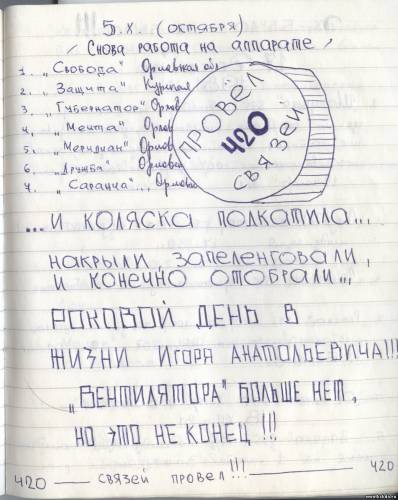 5.X. (ОКТЯБРЯ)
(Снова работа на аппарате)
1. „Свобода" Орловская обл
2. „Защита"
3. „Губернатор" Орлов
4. „Мечта" Орлов
5. „Меридиан" Орлов
6. „Дружба" Орловск
7. „Саранча"... Орловс
ПРОВЁЛ
420
СВЯЗЕЙ
...И КОЛЯСКА ПОДКАТИЛА...
НАКРЫЛИ, ЗАПЕЛЕНГОВАЛИ,
И КОНЕЧНО ОТОБРАЛИ...
РОКОВОЙ ДЕНЬ В
ЖИЗНИ ИГОРЯ АНАТОЛЬЕВИЧА!!!
„ВЕНТИЛЯТОРА" БОЛЬШЕ НЕТ,
НО ЭТО НЕ КОНЕЦ!!!
420 — СВЯЗЕЙ ПРОВЕЛ!!! — 420